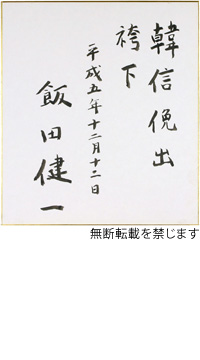 韓信俛出
袴下
平成五年十二月十二日
飯田健一
無断転載を禁じます